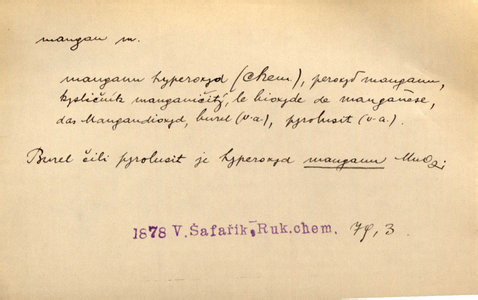 mangan m.
manganu hyperoxyd (chem.), peroxyd manganu,
kysličník manganičitý, le bioxyde de manganèse,
das Mangandioxyd, burel (v.a.), pyrolusit (v.a.).
Burel čili pyrolusit je hyperoxyd manganu MnO2;
1878 V. Šafařík, Ruk.chem. 79, 3.